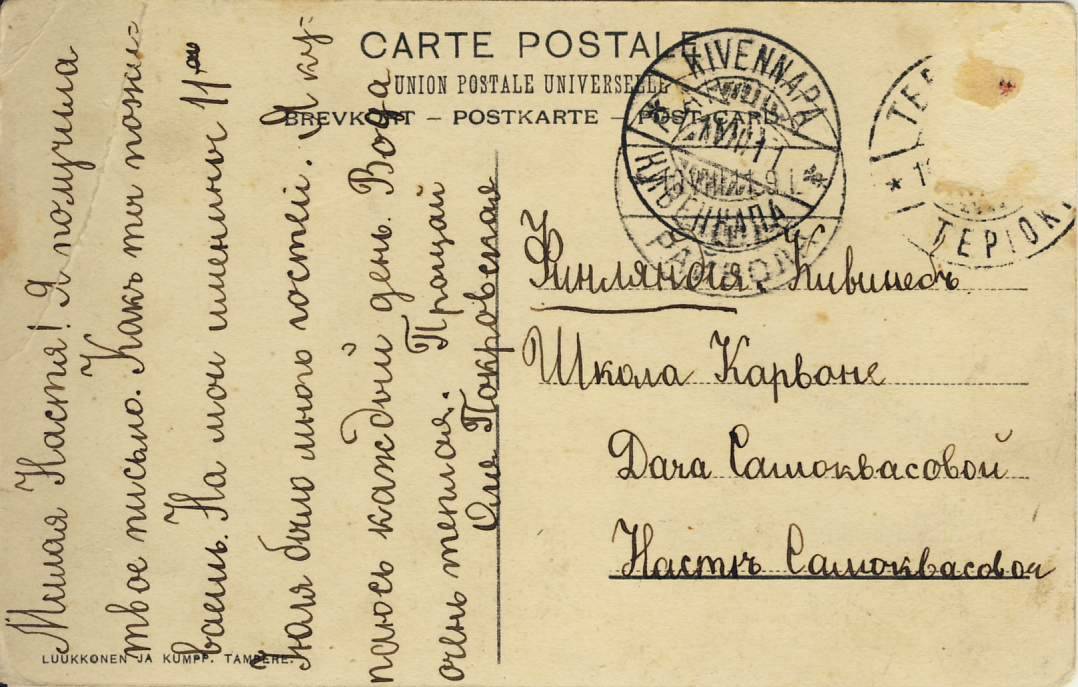 CARTE POSTALE
UNION POSTALE UNIVERSELLE
BREVKORT – POSTKARTE – POST-CARD
Милая Настя! Я получила
твое письмо. Какъ ты пожи-
ваешь. На мои именины 11го
Iюля было много гостей. Я ку-
паюсь каждый день. Вода
очень теплая. Прощай
Оля Покровская
Финляндія. Кивинебъ
Школа Карвоне
Дача Самоквасовой
Настѣ Самоквасовой
KIVENNAPA
КИВЕННАПА
РАЙВОЛА
TER
ТЕРIОКИ
LUUKKONEN JA KUMPP. TAMPERE.